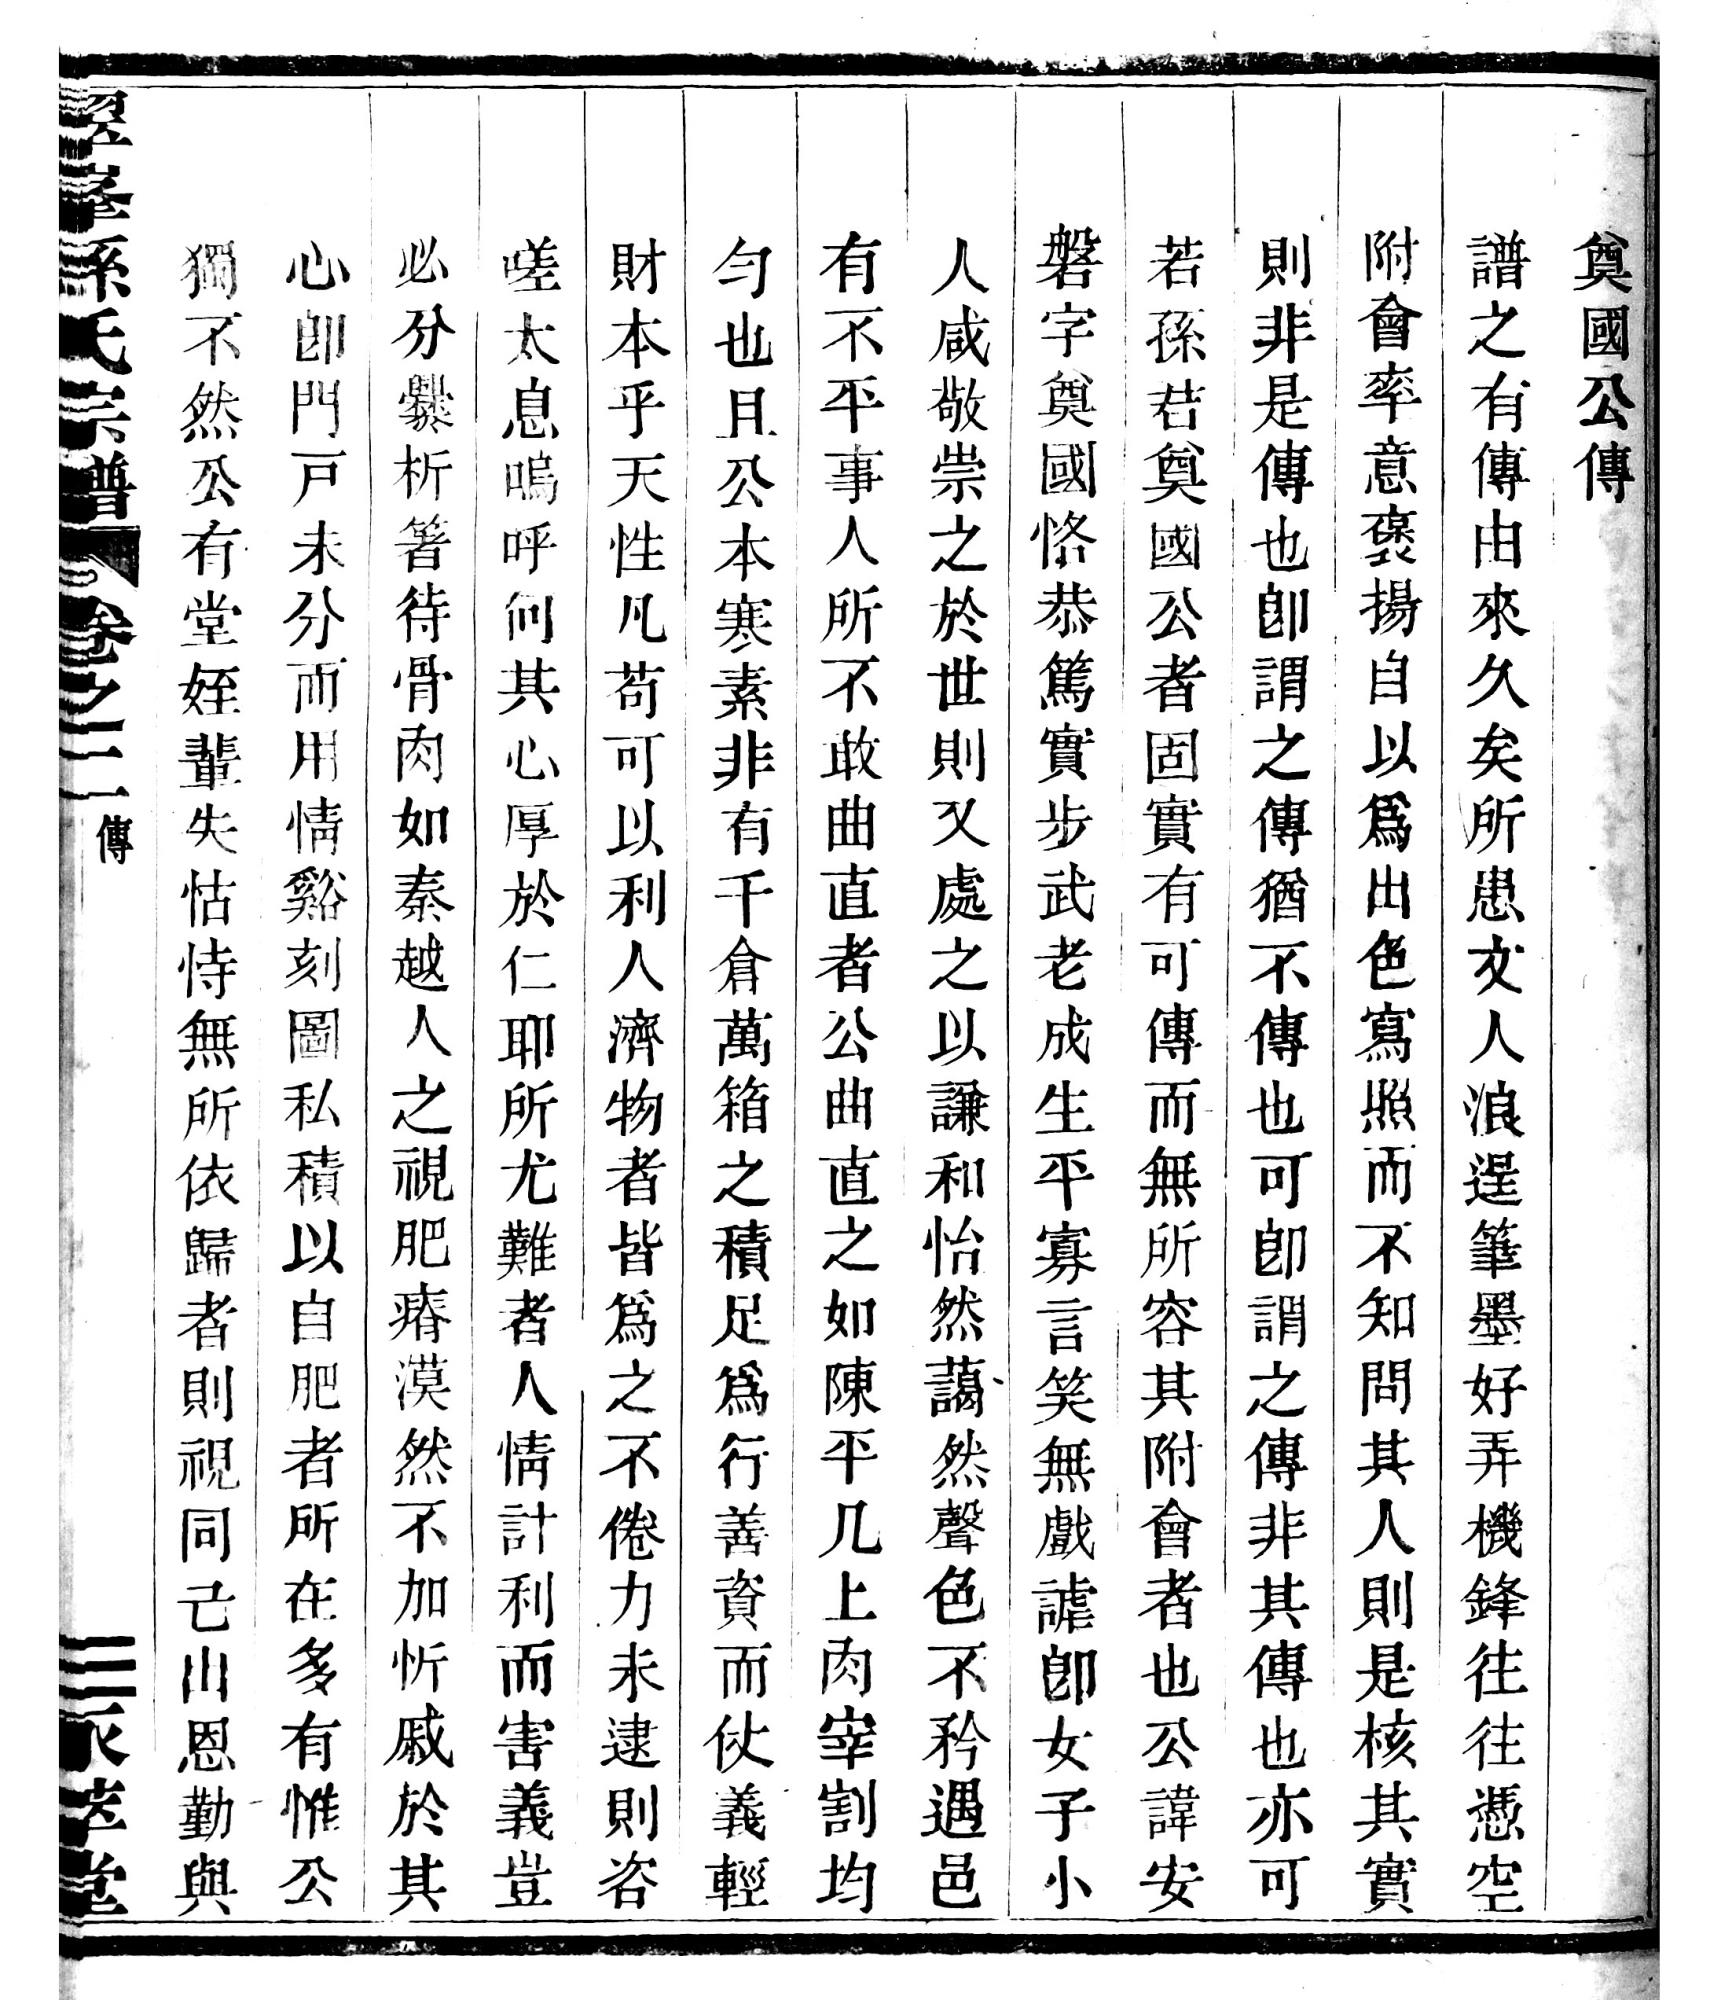 奠國公傳
譜之有傳由來久矣所患文人浪逞筆墨好弄機鋒往往憑空
附會率意褒揚自以爲出色寫照而不知問其人則是核其實
則非是傳也卽謂之傳猶不傳也可卽謂之傳非其傳也亦可
若孫君奠國公者固實有可傳而無所容其附會者也公諱安
磐字奠國恪恭篤實步武老成生平寡言笑無戲謔卽女子小
人咸敬崇之於世則又處之以謙和怡然藹然聲色不矜遇邑
有不平事人所不敢曲直者公曲直之如陳平几上肉宰割均
勻也且公本寒素非有千倉萬箱之積足爲行善資而仗義輕
財本乎天性凡苟可以利人濟物者皆爲之不倦力未逮則咨
嗟太息嗚呼何其心厚於仁耶所尤難者人情計利而害義豈
必分爨析箸待骨肉如秦越人之視肥瘠漠然不加忻戚於其
心卽門戸未分而用情谿刻圖私積以自肥者所在多有惟公
獨不然公有堂姪輩失怙恃無所依歸者則視同己出恩勤與
孫氏宗譜 卷之二 傳 三 萃堂